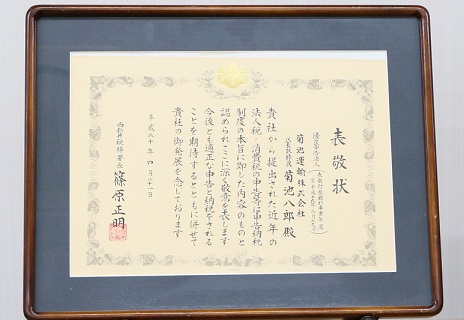 表敬状
優良申告法人
菊池運輸株式会社
代表取締役 菊池八郎 殿
貴社から提出された近年の
法人税・消費税の申告等は申告納税
制度の本旨に即した内容のものと
認められここに深く敬意を表します
今後とも適正な申告と納税をされる
ことを期待するとともに併せて
貴社の御発展を念じております
平成二十年四月二十二日
西新井税務署長
篠原正明